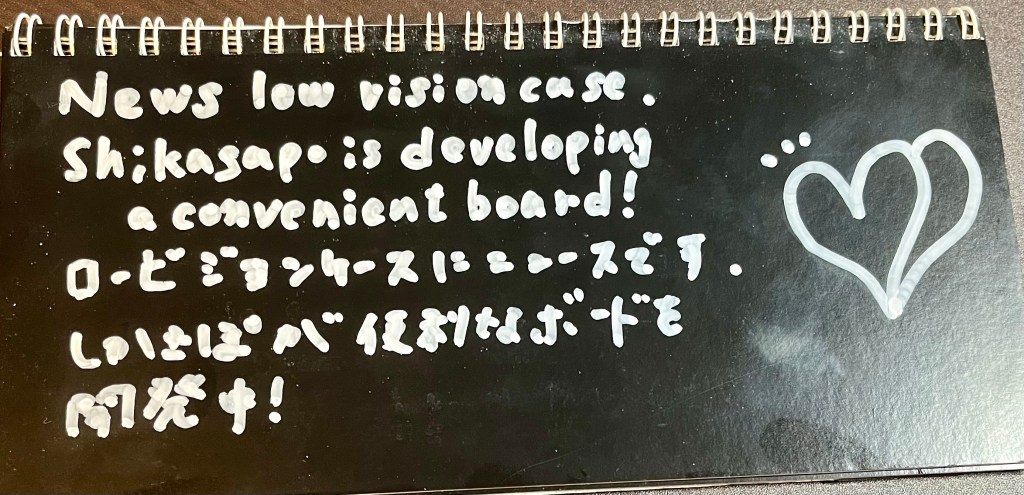 News low vision case.
Shikasapo is developing
a convenient board!
ロービジョンケースにニュースです.
しかさぽが便利なボードを
開発中!